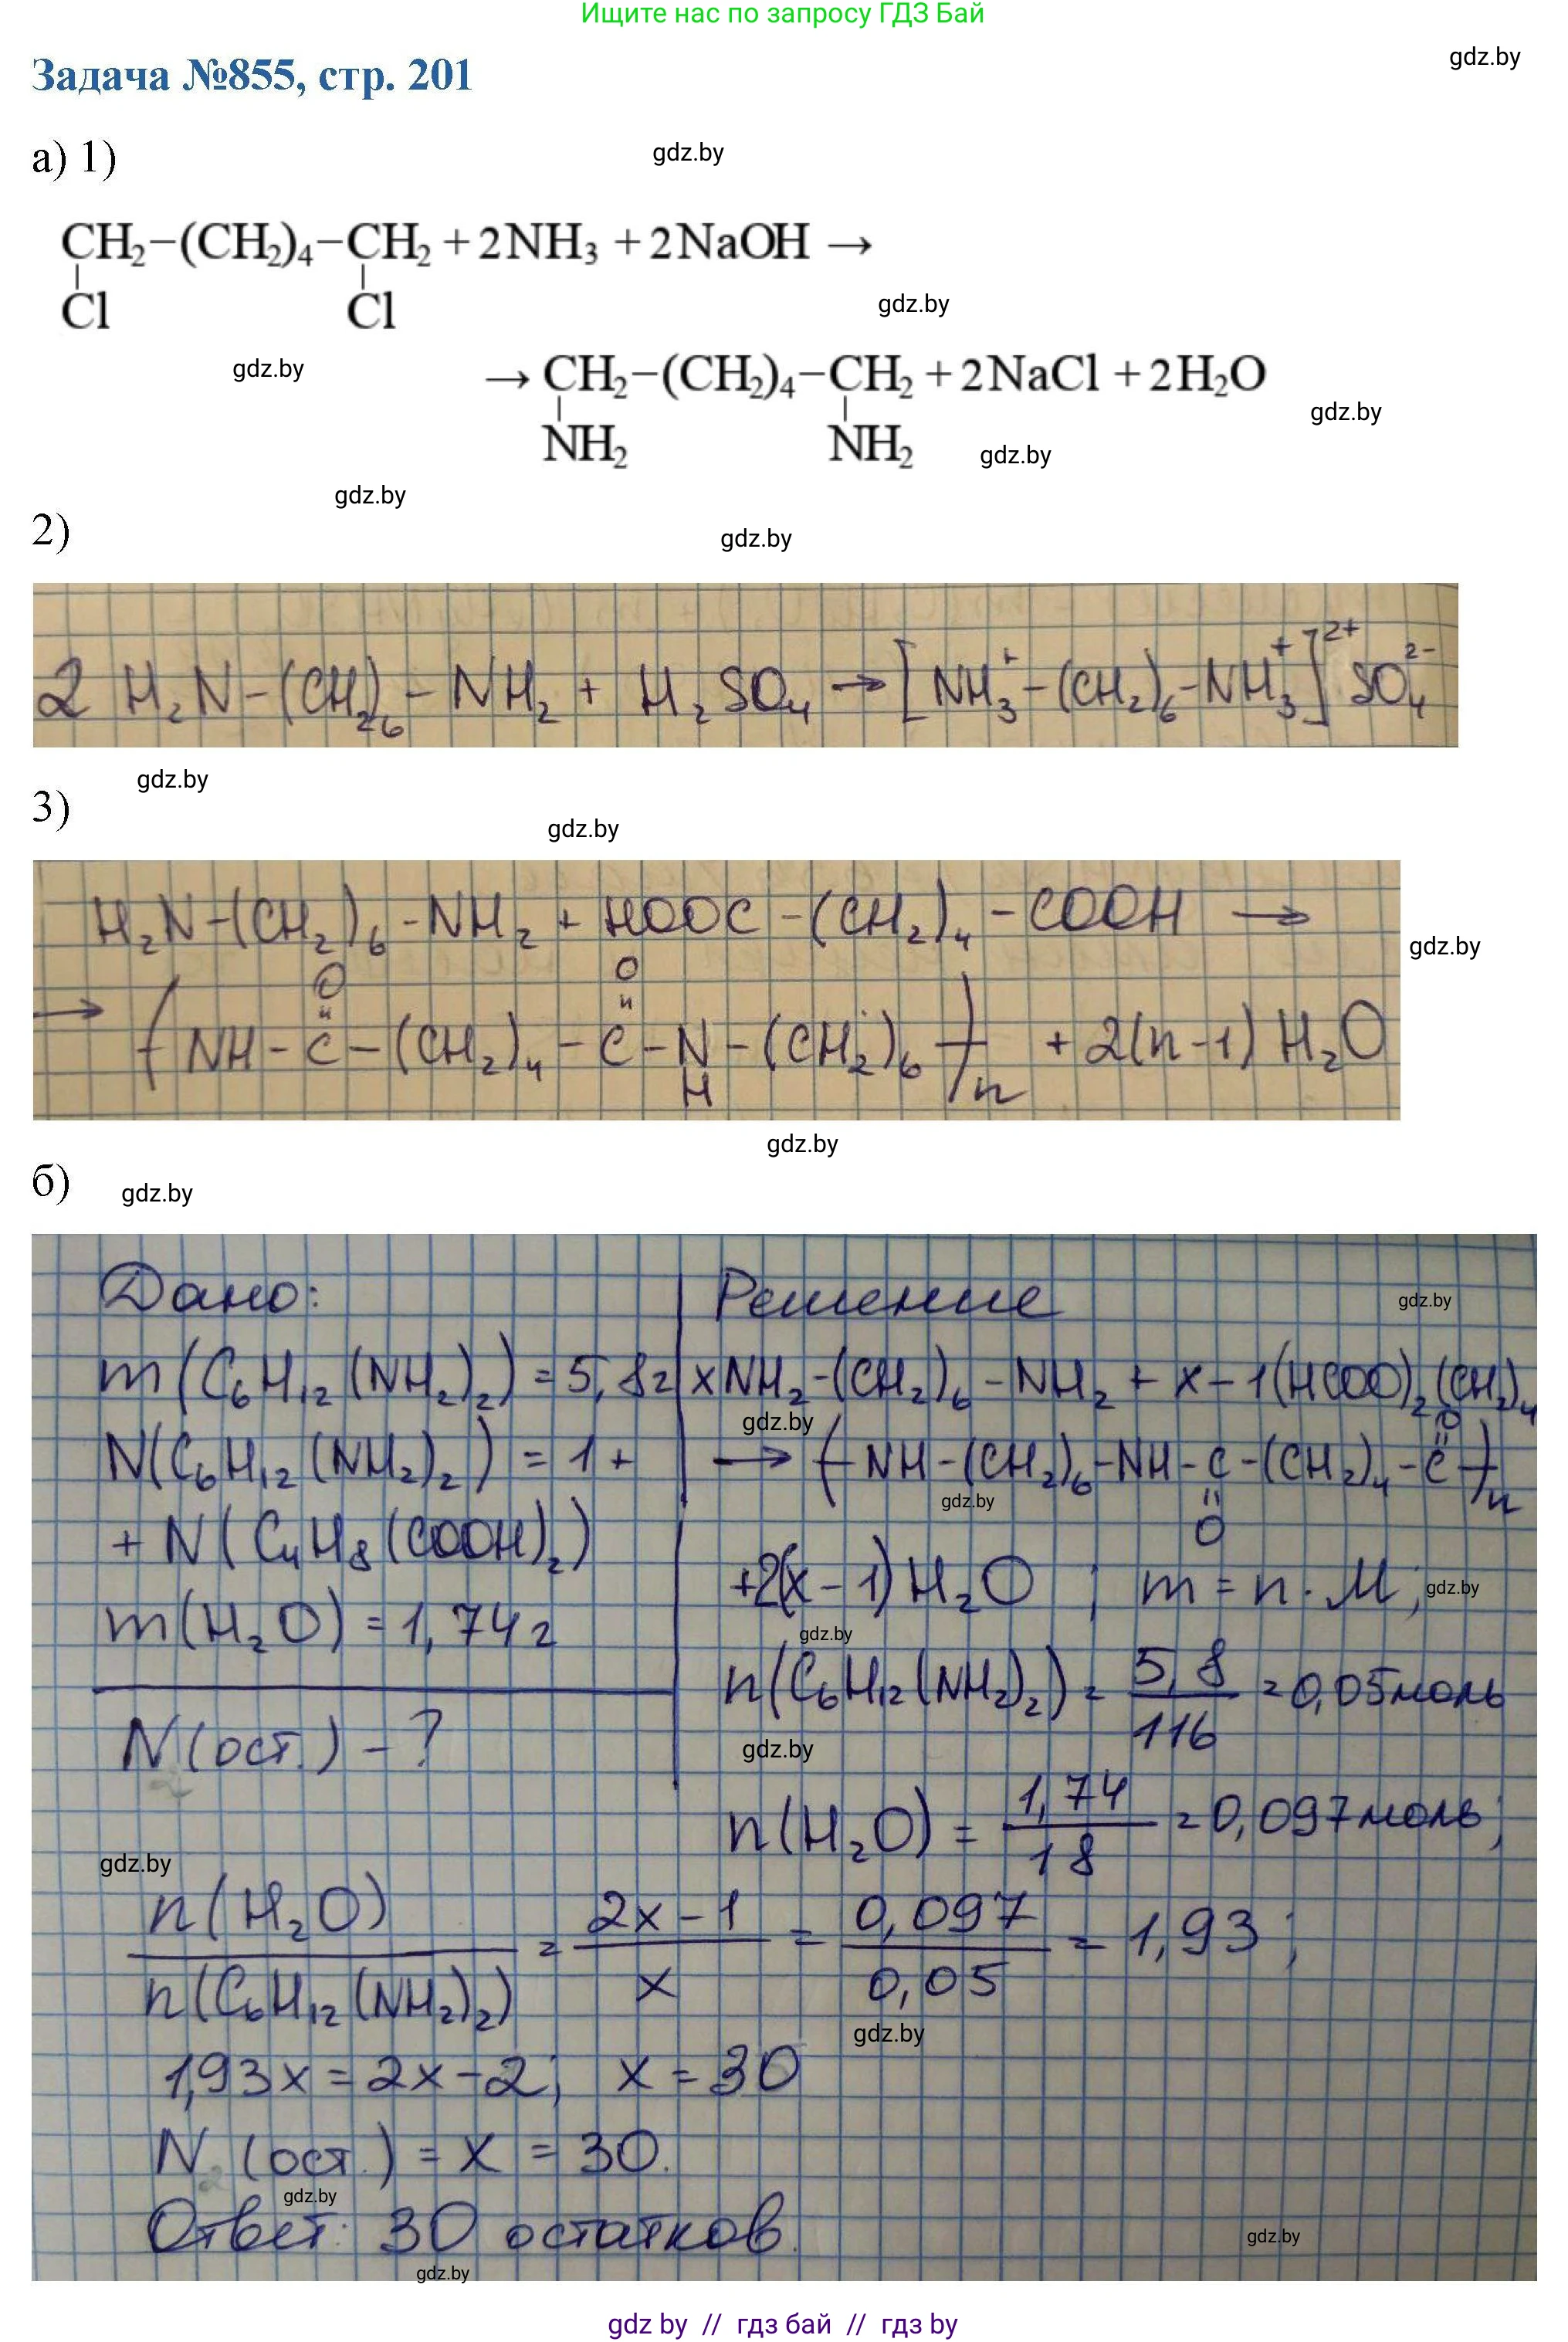 Ищите нас по запросу ГДЗ Бай
gdz.by
Задача №855, стр. 201
а) 1)
gdz.by
CH₂−(CH₂)₄−CH₂ + 2NH₃ + 2NaOH →
Cl Cl
gdz.by
gdz.by
→ CH₂−(CH₂)₄−CH₂ + 2NaCl + 2H₂O
NH₂ NH₂
gdz.by
gdz.by
gdz.by
2)
gdz.by
2 H₂N-(CH₂)₆-NH₂ + H₂SO₄ → [NH₃⁺-(CH₂)₆-NH₃⁺]²⁺ SO₄²⁻
gdz.by
3)
gdz.by
H₂N-(CH₂)₆-NH₂ + HOOC-(CH₂)₄-COOH →
gdz.by
O O
→ (NH-C-(CH₂)₄-C-N-(CH₂)₆)n + 2(n-1) H₂O
H
gdz.by
б)
gdz.by
Дано: Решение
gdz.by
m(C₆H₁₂(NH₂)₂) = 5,8г xNH₂-(CH₂)₆-NH₂ + x-1(HCOO)₂(CH₂)₄
gdz.by
O
N(C₆H₁₂(NH₂)₂) = 1+ → (NH-(CH₂)₆-NH-C-(CH₂)₄-C)n
gdz.by
O
+ N(C₄H₈(COOH)₂)
+2(x-1)H₂O ; m = n·M;
gdz.by
m(H₂O) = 1,74г
gdz.by
n(C₆H₁₂(NH₂)₂) = 5,8/116 = 0,05моль
N(ост.) - ?
gdz.by
n(H₂O) = 1,74/18 = 0,097моль;
gdz.by
n(H₂O)/n(C₆H₁₂(NH₂)₂) = 2x-1/x = 0,097/0,05 = 1,93;
gdz.by
1,93x = 2x-2; x = 30
N (ост.) = x = 30.
gdz.by
Ответ: 30 остатков.
gdz.by
gdz.by
gdz by // гдз бай // гдз by